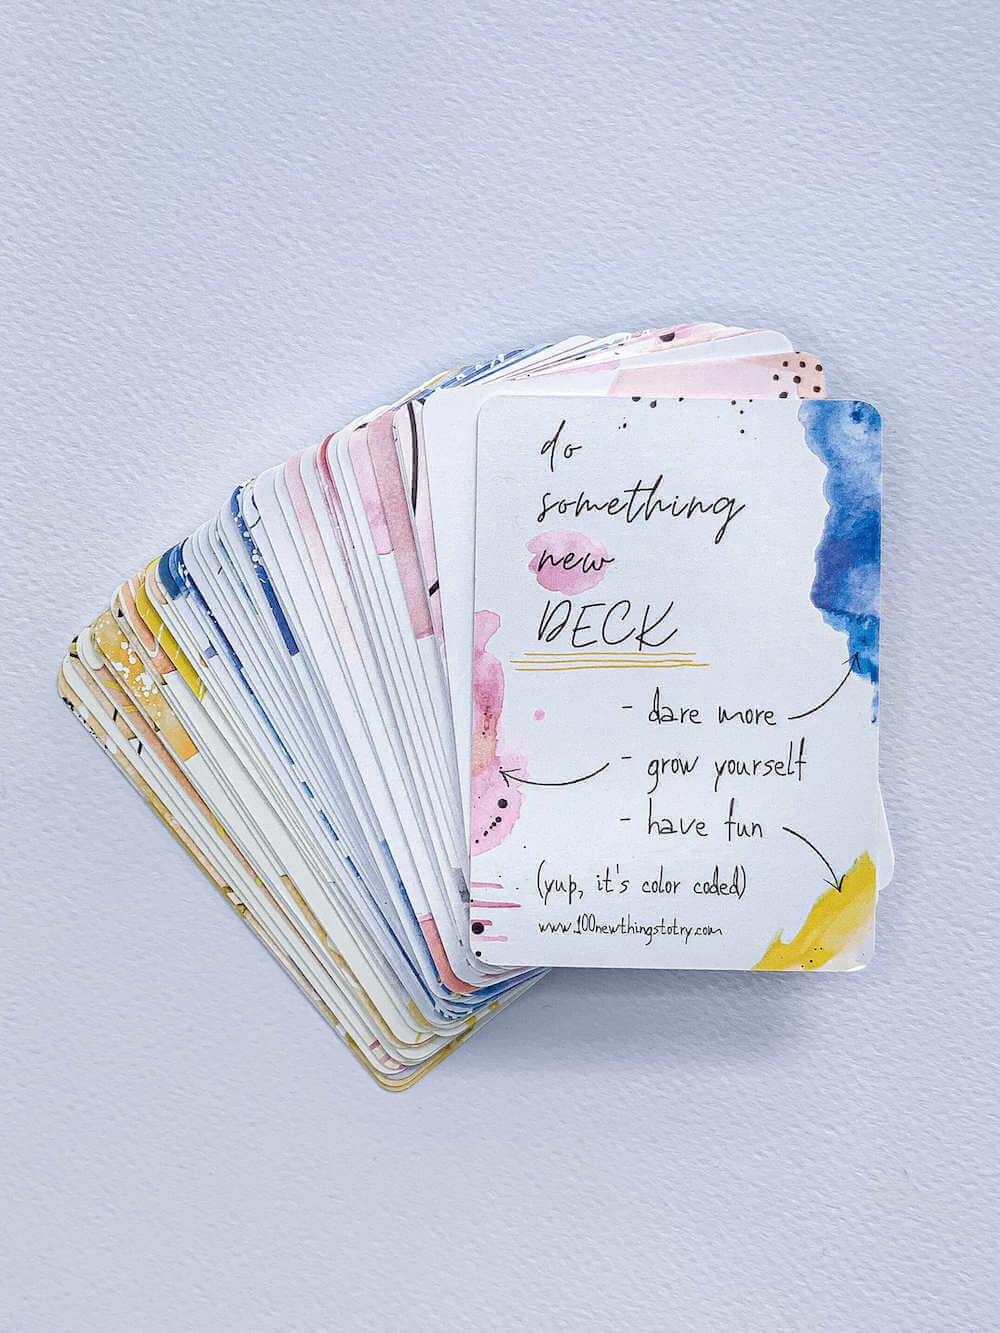 do
something
new
DECK
- dare more
- grow yourself
- have fun
(yup, it's color coded)
www.100newthingstotry.com